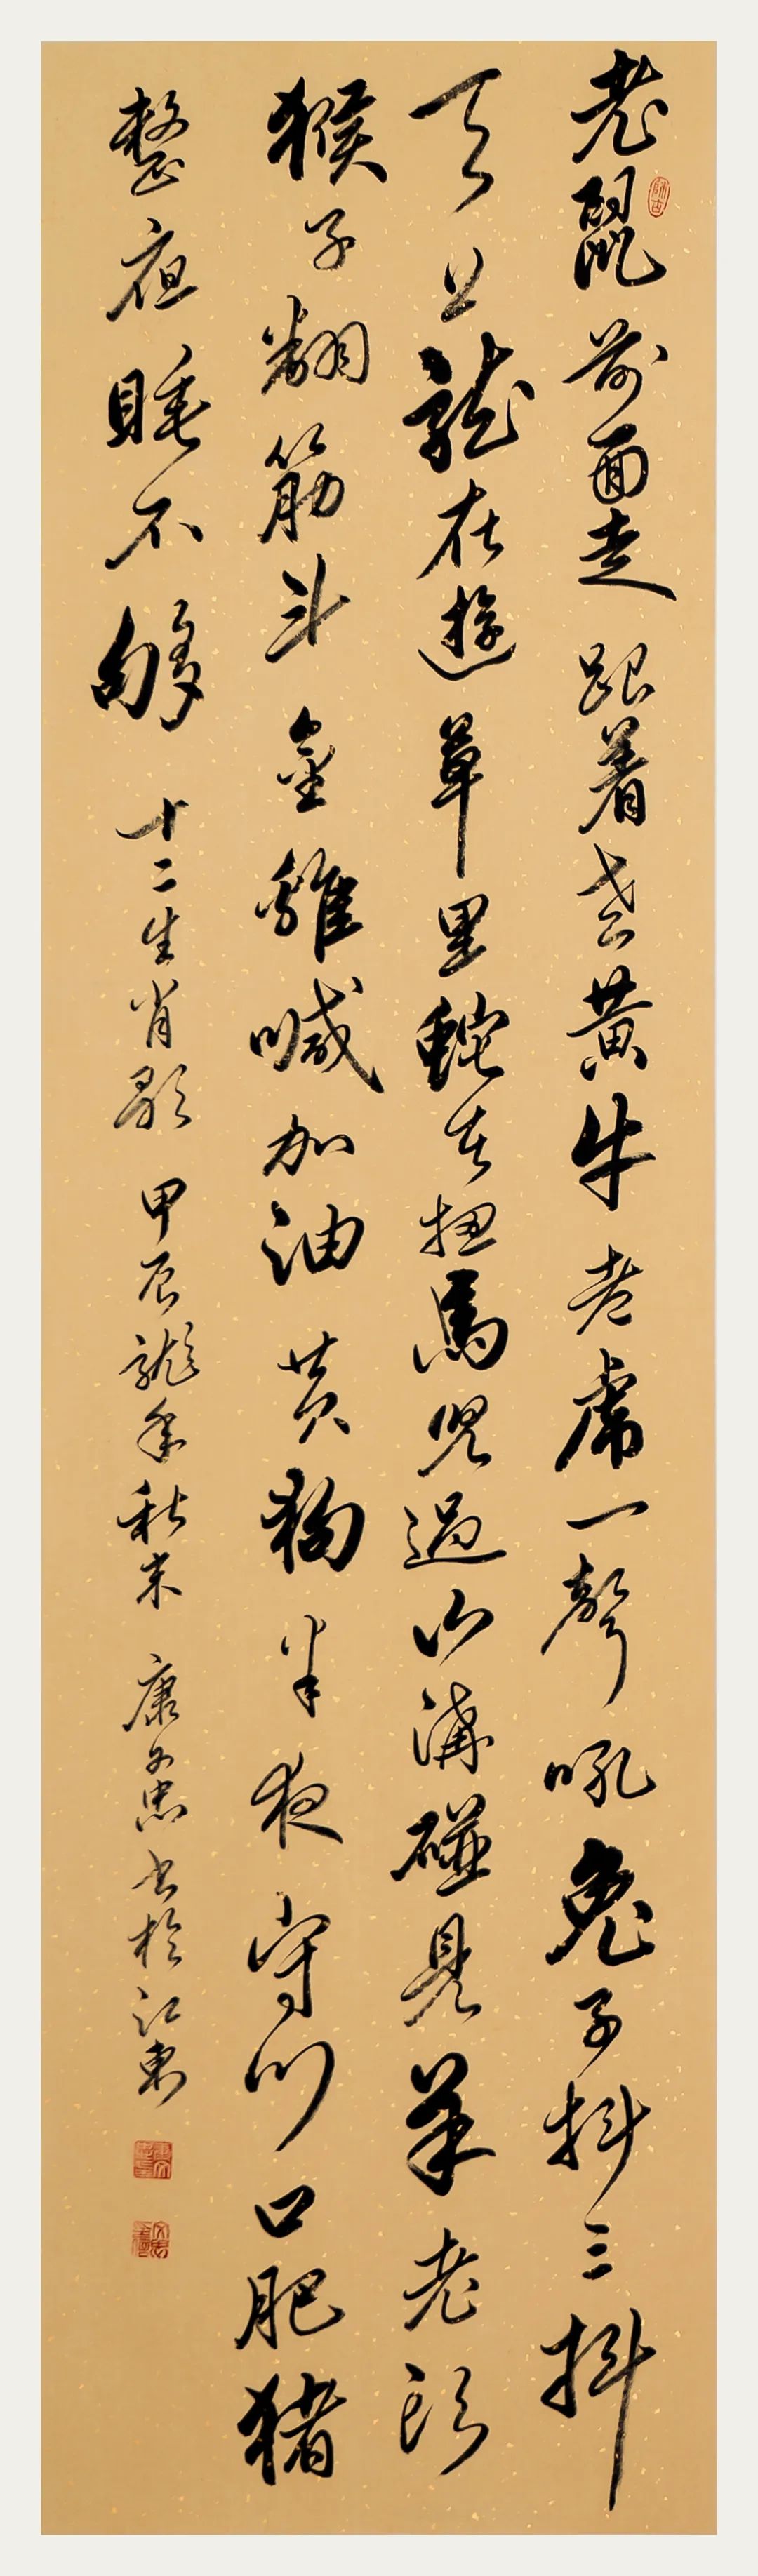 老鼠前面走跟着老黄牛老虎一聲吼兔子抖三抖
天上龍在遊草里蛇在扭馬兒過山溝碰見羊老頭
猴子翻筋斗金雞喊加油黄狗半夜守门口肥猪
整夜睡不够 十二生肖歌 甲辰龍年秋末 康 书於江東
師古